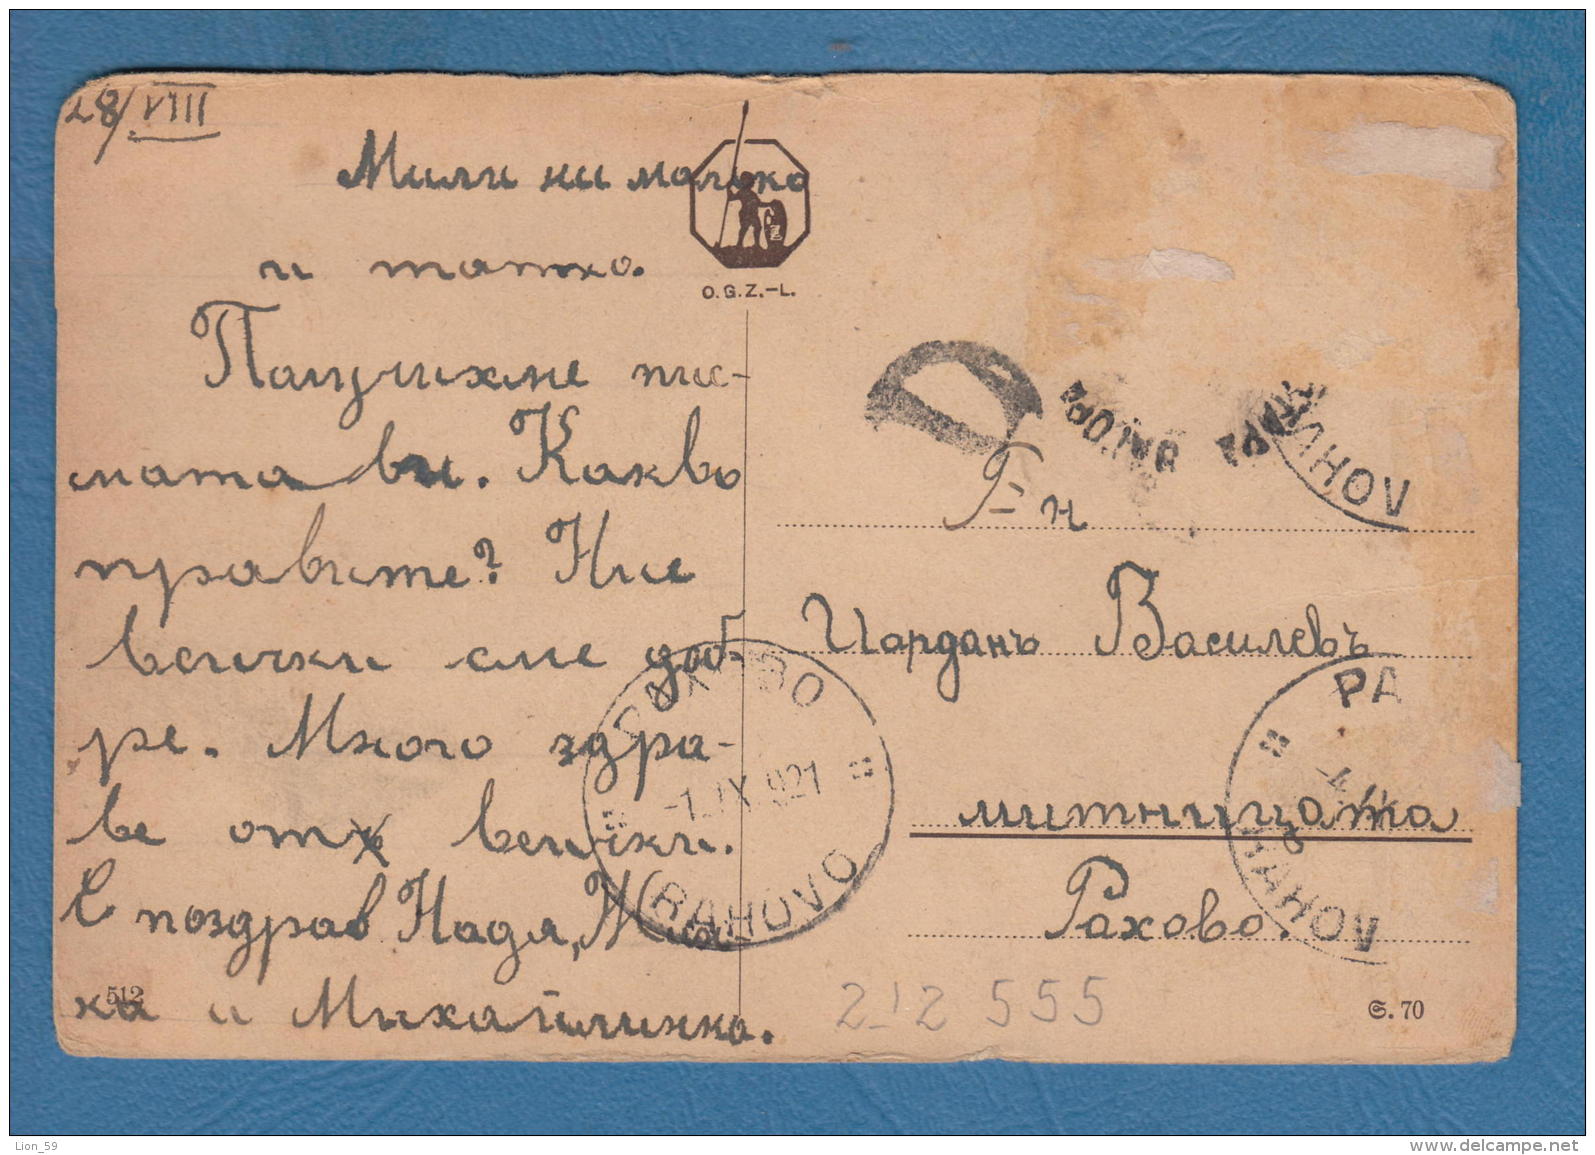 28/VIII
Мили ни малъко
и татко.
O.G.Z.-L.
Палучихме пис-
мата ви. Какво
правите? Ние
всички сме доб-
ре. Много здра-
ве от всички.
С поздрав Надя, Ми
ка и Михайлинка.
512
D
Г-н
Иорданъ Василевъ
митницата
Рахово.
РАХОВО
-1.IX.921
RAHOVO
РА
212555
S. 70
Lion_59
www.delcampe.net